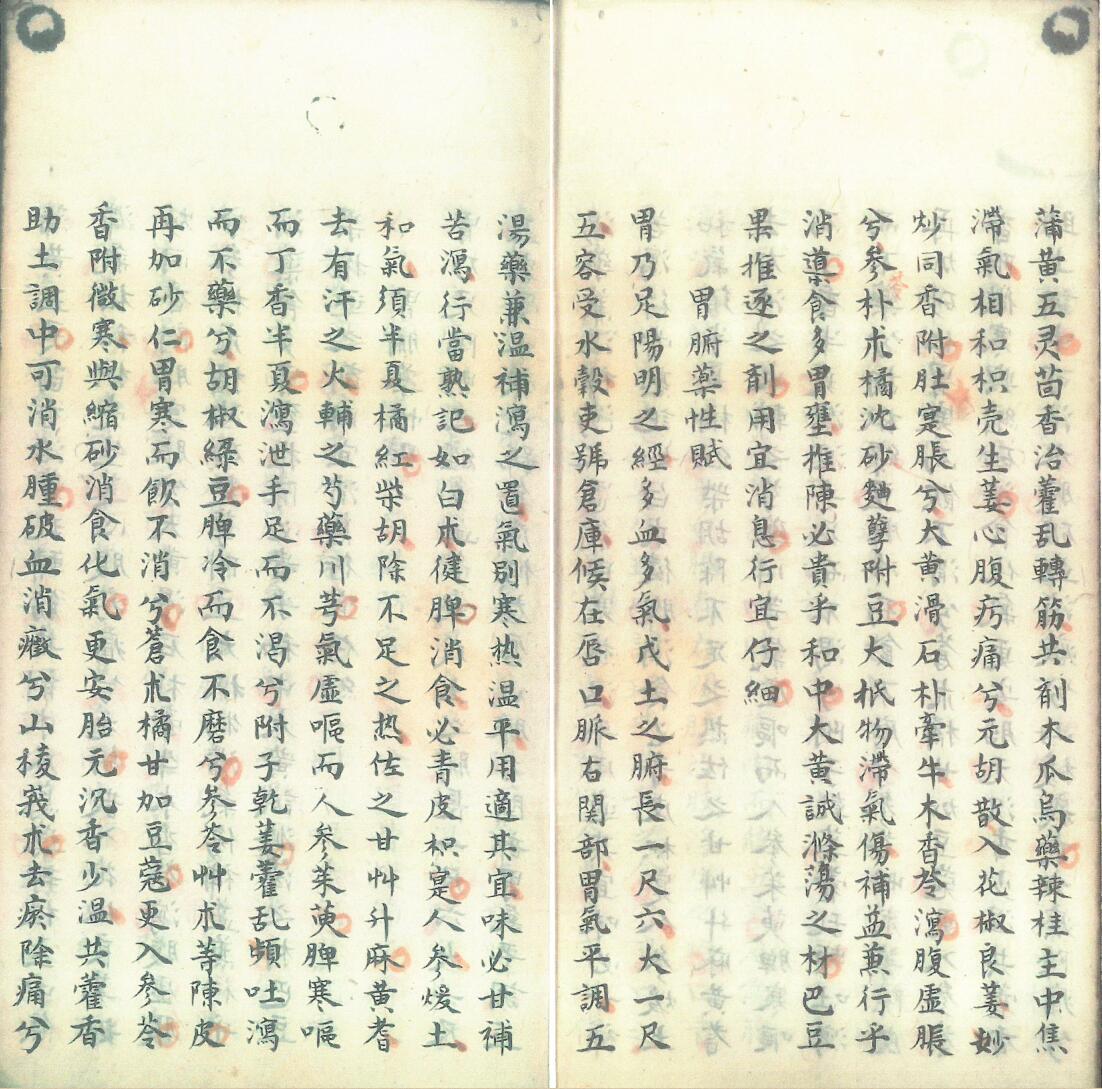 蒲黄五灵茴香治藿乱轉筋共剤木瓜烏藥辣桂主中焦
滯氣相和枳壳生姜心腹疞痛兮元胡散入花椒良姜妙
炒同香附肚寔脹兮大黄滑石朴牽牛木香苓瀉腹虚脹
兮參朴朮橘沈砂麯孽附豆大抵物滯氣傷補益兼行乎
消導食多胃壅推陳必貴乎和中大黄誠滌蕩之材巴豆
果推逐之剤用宜消息行宜仔細
胃腑薬性賦
胃乃足陽明之經多血多氣戊土之腑長一尺六大一尺
五容受水穀吏號倉庫候在唇口脈右関部胃氣平調五
湯藥兼温補瀉之置氣别寒热温平用適其宜味必甘補
苦瀉行當熟記如白朮健脾消食必青皮枳寔人參煖土
和氣須半夏橘紅柴胡除不足之热佐之甘艸升麻黄耆
去有汗之火輔之芍藥川芎氣虚嘔而人參茱萸脾寒嘔
而丁香半夏瀉泄手足而不渴兮附子乾姜藿乱頻吐瀉
而不藥兮胡椒綠豆脾冷而食不磨兮參苓艸朮等陳皮
再加砂仁胃寒而飲不消兮蒼朮橘甘加豆蔻更入參苓
香附微寒與縮砂消食化氣更安胎元沉香少温共藿香
助土調中可消水腫破血消癥兮山稜莪朮去瘀除痛兮